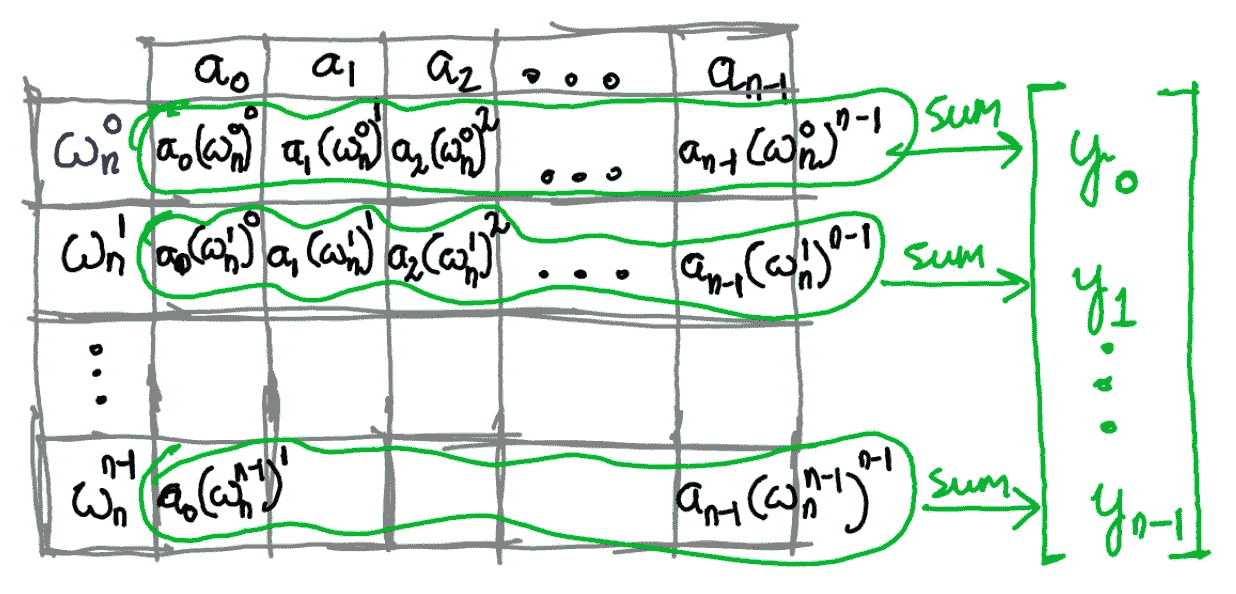 a₀ a₁ a₂ ... aₙ₋₁
ωₙ⁰ a₀(ωₙ⁰)⁰ a₁(ωₙ⁰)¹ a₂(ωₙ⁰)² ... aₙ₋₁(ωₙ⁰)ⁿ⁻¹ sum y₀
ωₙ¹ a₀(ωₙ¹)⁰ a₁(ωₙ¹)¹ a₂(ωₙ¹)² ... aₙ₋₁(ωₙ¹)ⁿ⁻¹ sum y₁
⋮ ⋮
ωₙⁿ⁻¹ a₀(ωₙⁿ⁻¹)¹ aₙ₋₁(ωₙⁿ⁻¹)ⁿ⁻¹ sum yₙ₋₁